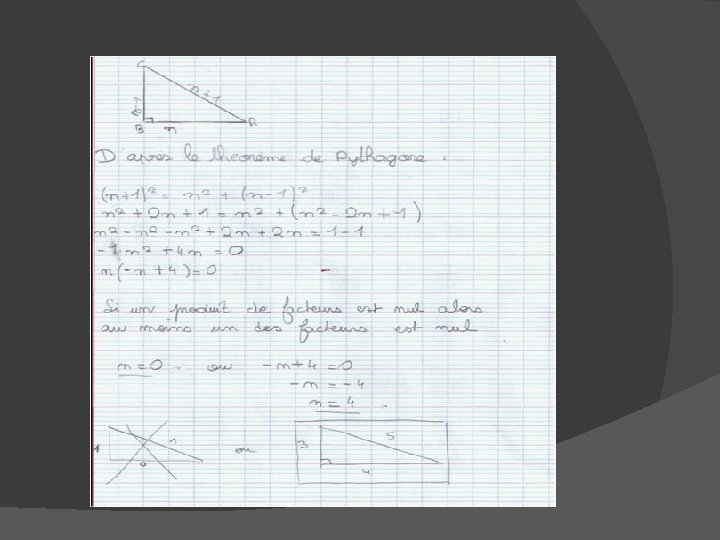 C
n+1
n-1
B n A
D'après le théorème de Pythagore :
(n+1)² = n² + (n-1)²
n² + 2n + 1 = n² + (n² - 2n + 1)
n² - n² - n² + 2n + 2n = 1 - 1
-1n² + 4n = 0
n(-n + 4) = 0
Si un produit de facteurs est nul alors
au moins un des facteurs est nul
n = 0 ou -n + 4 = 0
-n = -4
n = 4
ou 3 5
4